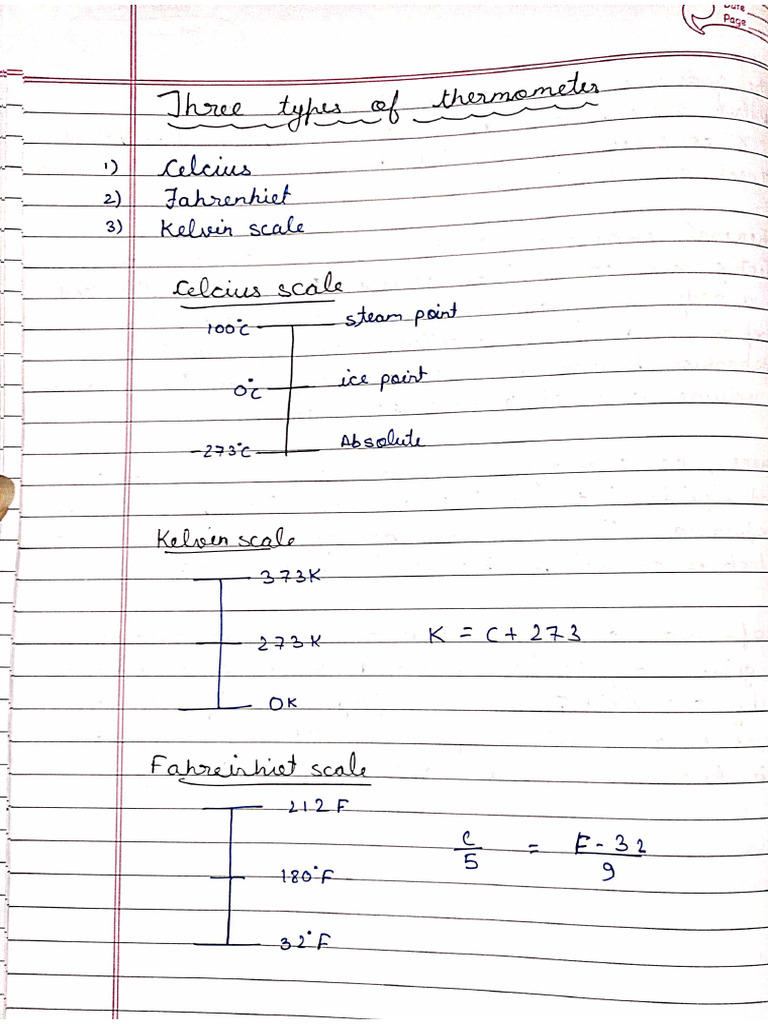 Date
Page
Three types of thermometer
1) Celcius
2) Fahrenhiet
3) Kelvin scale
Celcius scale
100°C steam point
0°C ice point
-273°C Absolute
Kelvein scale
373K
273K K = C + 273
0K
Fahreinhiet scale
212F
C/5 = F-32/9
180°F
32°F